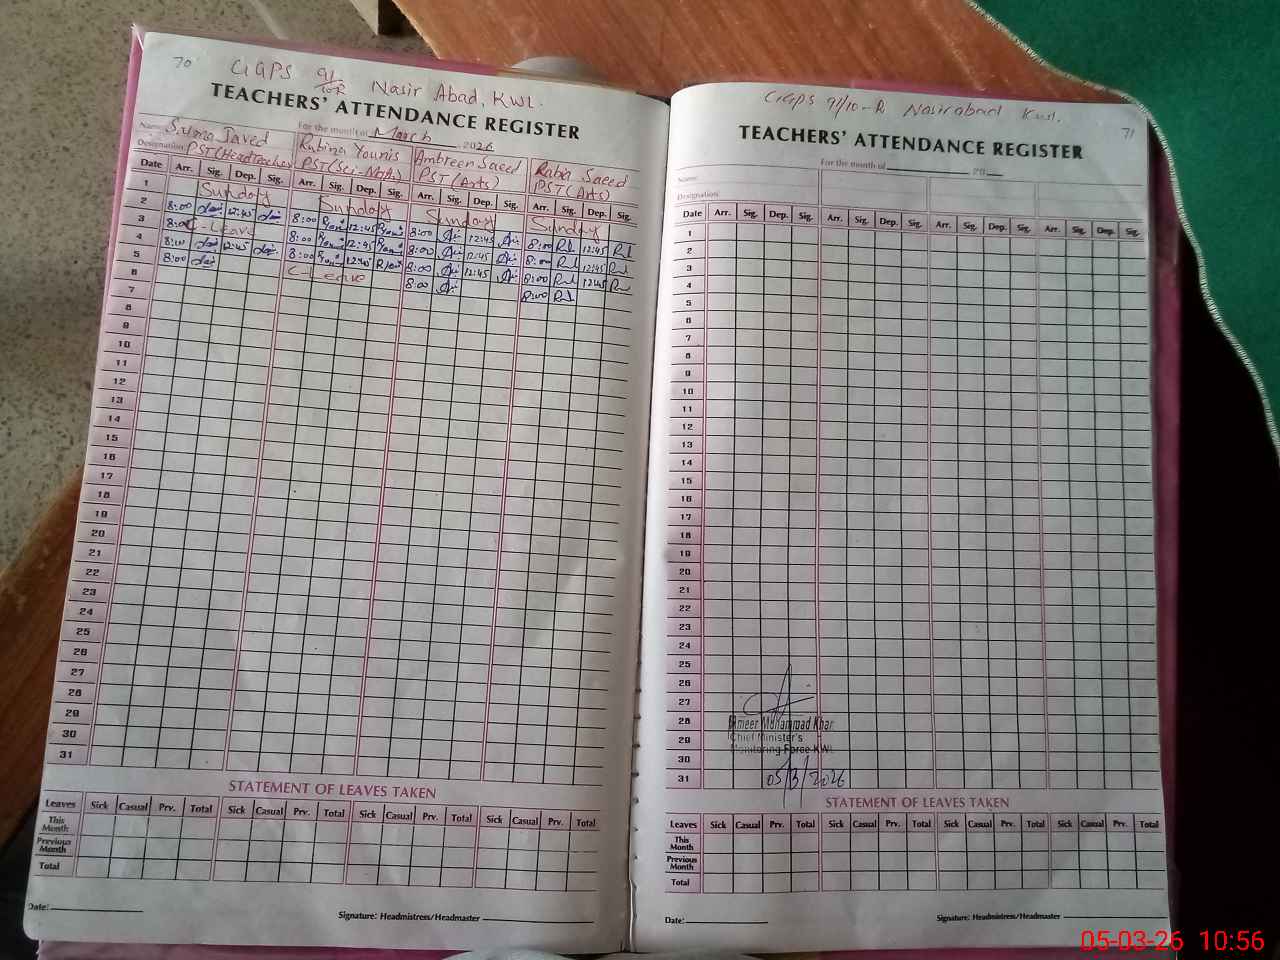 70
GGPS 91/10R Nasir Abad, KWL.
TEACHERS' ATTENDANCE REGISTER
For the month of March 2026
Name: Suma Javed Rubina Younis Ambreen Saeed Rabia Saeed
Designation: PST(HeadTeacher PST(Sci-Math) PST(Arts) PST(Arts)
Date Arr. Sig. Dep. Sig. Arr. Sig. Dep. Sig. Arr. Sig. Dep. Sig. Arr. Sig. Dep. Sig.
1 Sunday Sunday Sunday Sunday
2 8:00 12:45 8:00 12:45 8:00 12:45 8:00 12:45
3 8:00 C-Leave 8:00 12:45 8:00 12:45 8:00 12:45
4 8:00 12:45 8:00 12:45 8:00 12:45 8:00 12:45
5 8:00 C-Leave 8:00 8:00
6
7
8
9
10
11
12
13
14
15
16
17
18
19
20
21
22
23
24
25
26
27
28
29
30
31
STATEMENT OF LEAVES TAKEN
Leaves Sick Casual Prv. Total Sick Casual Prv. Total Sick Casual Prv. Total Sick Casual Prv. Total
This Month
Previous Month
Total
Date:
Signature: Headmistress/Headmaster
GGPS 91/10-R Nasirabad Kwl.
71
TEACHERS' ATTENDANCE REGISTER
For the month of 20
Name:
Designation:
Date Arr. Sig. Dep. Sig. Arr. Sig. Dep. Sig. Arr. Sig. Dep. Sig. Arr. Sig. Dep. Sig.
1
2
3
4
5
6
7
8
9
10
11
12
13
14
15
16
17
18
19
20
21
22
23
24
25
26
27
28
29
30
31
Ameer Muhammad Khan
Chief Minister's
Monitoring Force KWL
05/3/2026
STATEMENT OF LEAVES TAKEN
Leaves Sick Casual Prv. Total Sick Casual Prv. Total Sick Casual Prv. Total Sick Casual Prv. Total
This Month
Previous Month
Total
Date:
Signature: Headmistress/Headmaster
05-03-26 10:56